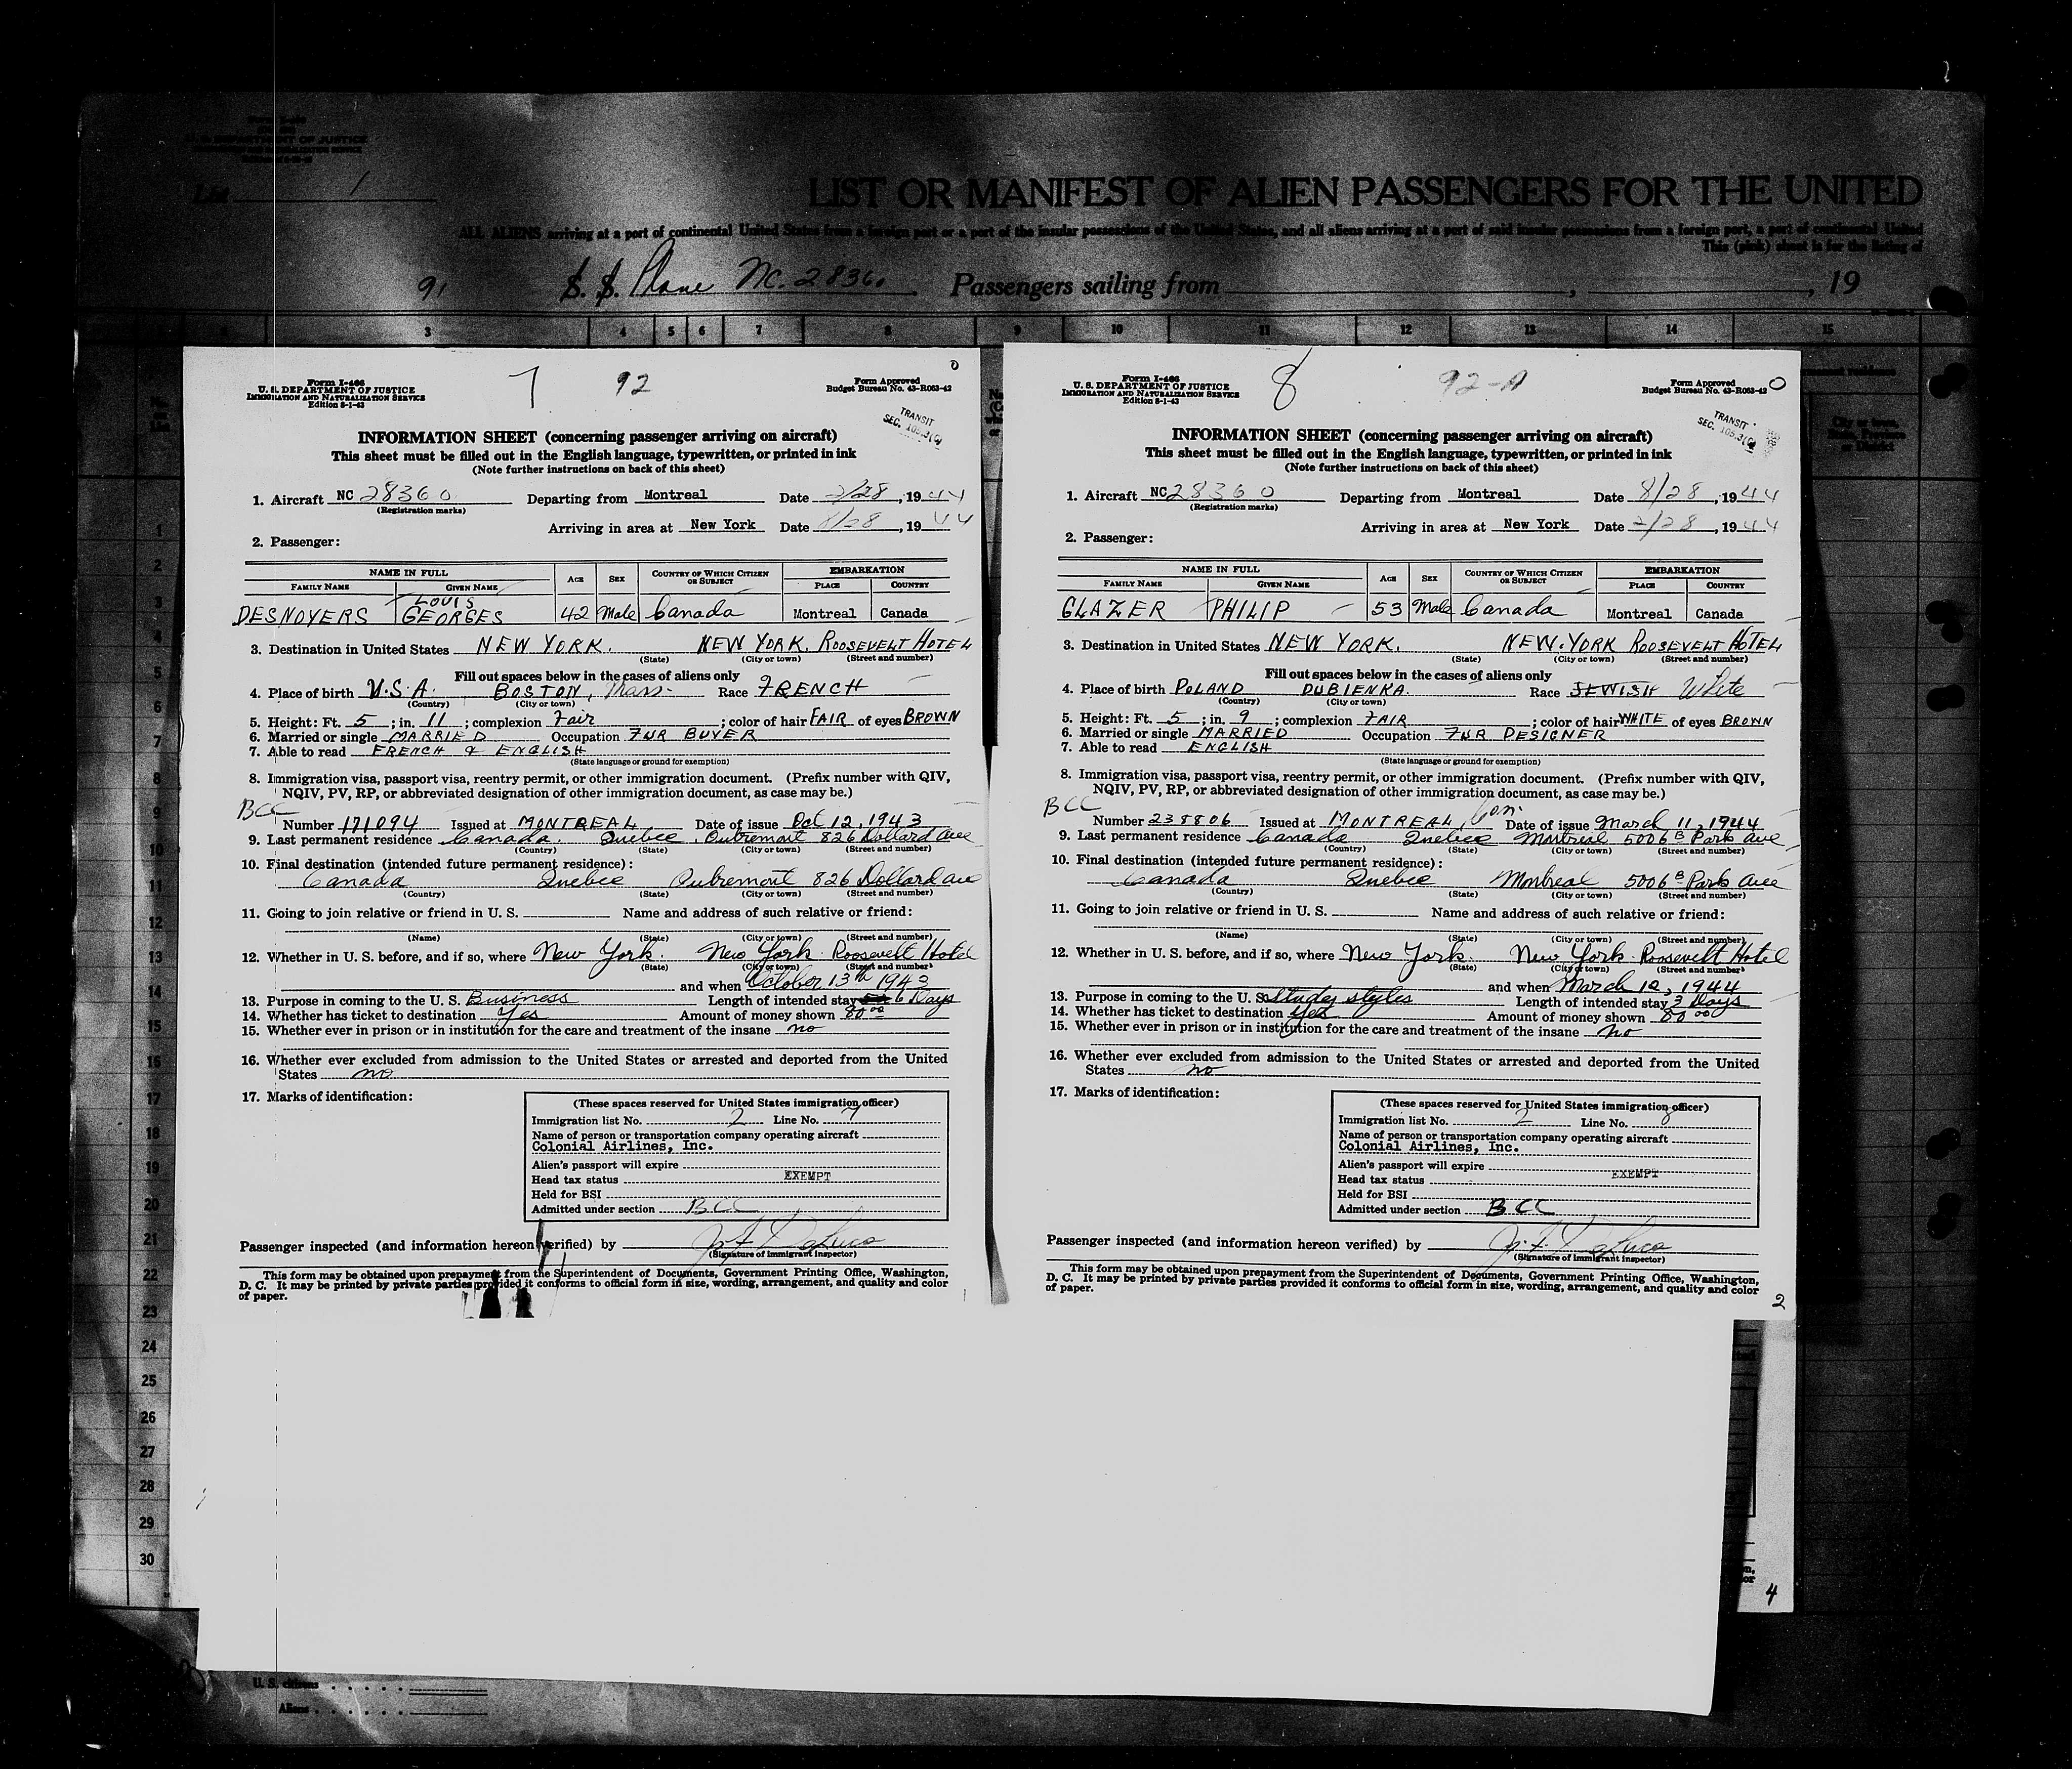 U. S. DEPARTMENT OF JUSTICE
List 1
LIST OR MANIFEST OF ALIEN PASSENGERS FOR THE UNITED
ALL ALIENS arriving at a port of continental United States from a foreign port or a port of the insular possessions of the United States, and all aliens arriving at a port of said insular possessions from a foreign port, a port of continental United
This (pink) sheet is for the listing of
91 S. S. Plane NC. 28360 Passengers sailing from , , 19
3 4 5 6 7 8 9 10 11 12 13 14 15
7 92
Form I-466
U. S. DEPARTMENT OF JUSTICE
IMMIGRATION AND NATURALIZATION SERVICE
Edition 8-1-43
Form Approved
Budget Bureau No. 43-R063-42
TRANSIT
SEC. 105.3(C)
INFORMATION SHEET (concerning passenger arriving on aircraft)
This sheet must be filled out in the English language, typewritten, or printed in ink
(Note further instructions on back of this sheet)
1. Aircraft NC 28360 Departing from Montreal Date /28, 1944
(Registration marks)
Arriving in area at New York Date 8/28, 1944
2. Passenger:
NAME IN FULL AGE SEX COUNTRY OF WHICH CITIZEN OR SUBJECT EMBARKATION
FAMILY NAME GIVEN NAME PLACE COUNTRY
LOUIS
DESNOYERS GEORGES 42 Male Canada Montreal Canada
3. Destination in United States NEW YORK. NEW YORK. ROOSEVELT HOTEL
(State) (City or town) (Street and number)
Fill out spaces below in the cases of aliens only
4. Place of birth U.S.A. BOSTON, Mass. Race FRENCH
(Country) (City or town)
5. Height: Ft. 5; in. 11; complexion Fair; color of hair FAIR of eyes BROWN
6. Married or single MARRIED Occupation FUR BUYER
7. Able to read FRENCH & ENGLISH
(State language or ground for exemption)
8. Immigration visa, passport visa, reentry permit, or other immigration document. (Prefix number with QIV,
NQIV, PV, RP, or abbreviated designation of other immigration document, as case may be.)
BCC
Number 171094 Issued at MONTREAL Date of issue Oct 12, 1943
9. Last permanent residence Canada. Quebec, Outremont 826 Dollard Ave
(Country) (State) (City or town) (Street and number)
10. Final destination (intended future permanent residence):
Canada Quebec Outremont 826 Dollard ave
(Country) (State) (City or town) (Street and number)
11. Going to join relative or friend in U. S. Name and address of such relative or friend:
(Name) (State) (City or town) (Street and number)
12. Whether in U. S. before, and if so, where New York. New York. Roosevelt Hotel
(State) (City or town) (Street and number)
and when October 13th 1943
13. Purpose in coming to the U. S. Business Length of intended stay 6 Days
14. Whether has ticket to destination Yes Amount of money shown 80.00
15. Whether ever in prison or in institution for the care and treatment of the insane no
16. Whether ever excluded from admission to the United States or arrested and deported from the United
States no
17. Marks of identification:
(These spaces reserved for United States immigration officer)
Immigration list No. 2 Line No. 7
Name of person or transportation company operating aircraft
Colonial Airlines, Inc.
Alien's passport will expire
Head tax status EXEMPT
Held for BSI
Admitted under section BCC
Passenger inspected (and information hereon verified) by
(Signature of immigrant inspector)
This form may be obtained upon prepayment from the Superintendent of Documents, Government Printing Office, Washington,
D. C. It may be printed by private parties provided it conforms to official form in size, wording, arrangement, and quality and color
of paper.
8 92-A
Form I-466
U. S. DEPARTMENT OF JUSTICE
IMMIGRATION AND NATURALIZATION SERVICE
Edition 8-1-43
Form Approved
Budget Bureau No. 43-R063-42
TRANSIT
SEC. 105.3(C)
INFORMATION SHEET (concerning passenger arriving on aircraft)
This sheet must be filled out in the English language, typewritten, or printed in ink
(Note further instructions on back of this sheet)
1. Aircraft NC 28360 Departing from Montreal Date 8/28, 1944
(Registration marks)
Arriving in area at New York Date /28, 1944
2. Passenger:
NAME IN FULL AGE SEX COUNTRY OF WHICH CITIZEN OR SUBJECT EMBARKATION
FAMILY NAME GIVEN NAME PLACE COUNTRY
GLAZER PHILIP 53 Male Canada Montreal Canada
3. Destination in United States NEW YORK. NEW.YORK ROOSEVELT HOTEL
(State) (City or town) (Street and number)
Fill out spaces below in the cases of aliens only
4. Place of birth POLAND DUBIENKA. Race JEWISH White
(Country) (City or town)
5. Height: Ft. 5; in. 9; complexion FAIR; color of hair WHITE of eyes BROWN
6. Married or single MARRIED Occupation FUR DESIGNER
7. Able to read ENGLISH
(State language or ground for exemption)
8. Immigration visa, passport visa, reentry permit, or other immigration document. (Prefix number with QIV,
NQIV, PV, RP, or abbreviated designation of other immigration document, as case may be.)
BCC
Number 238806 Issued at MONTREAL, Can. Date of issue March 11, 1944
9. Last permanent residence Canada Quebec Montreal 5006B Park ave
(Country) (State) (City or town) (Street and number)
10. Final destination (intended future permanent residence):
Canada Quebec Montreal 5006B Park Ave
(Country) (State) (City or town) (Street and number)
11. Going to join relative or friend in U. S. Name and address of such relative or friend:
(Name) (State) (City or town) (Street and number)
12. Whether in U. S. before, and if so, where New York. New York. Roosevelt Hotel
(State) (City or town) (Street and number)
and when March 12, 1944
13. Purpose in coming to the U. S. Study styles Length of intended stay 3 Days
14. Whether has ticket to destination Yes Amount of money shown 80.00
15. Whether ever in prison or in institution for the care and treatment of the insane no
16. Whether ever excluded from admission to the United States or arrested and deported from the United
States no
17. Marks of identification:
(These spaces reserved for United States immigration officer)
Immigration list No. 2 Line No. 8
Name of person or transportation company operating aircraft
Colonial Airlines, Inc.
Alien's passport will expire
Head tax status EXEMPT
Held for BSI
Admitted under section BCC
Passenger inspected (and information hereon verified) by
(Signature of immigrant inspector)
This form may be obtained upon prepayment from the Superintendent of Documents, Government Printing Office, Washington,
D. C. It may be printed by private parties provided it conforms to official form in size, wording, arrangement, and quality and color
of paper.
2
1
2
3
4
5
6
7
8
9
10
11
12
13
14
15
16
17
18
19
20
21
22
23
24
25
26
27
28
29
30
4
U. S. citizens
Aliens